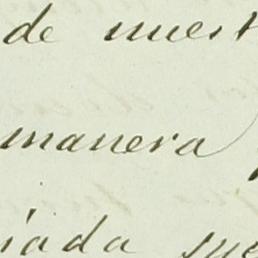 de nuest
manera
iada sue